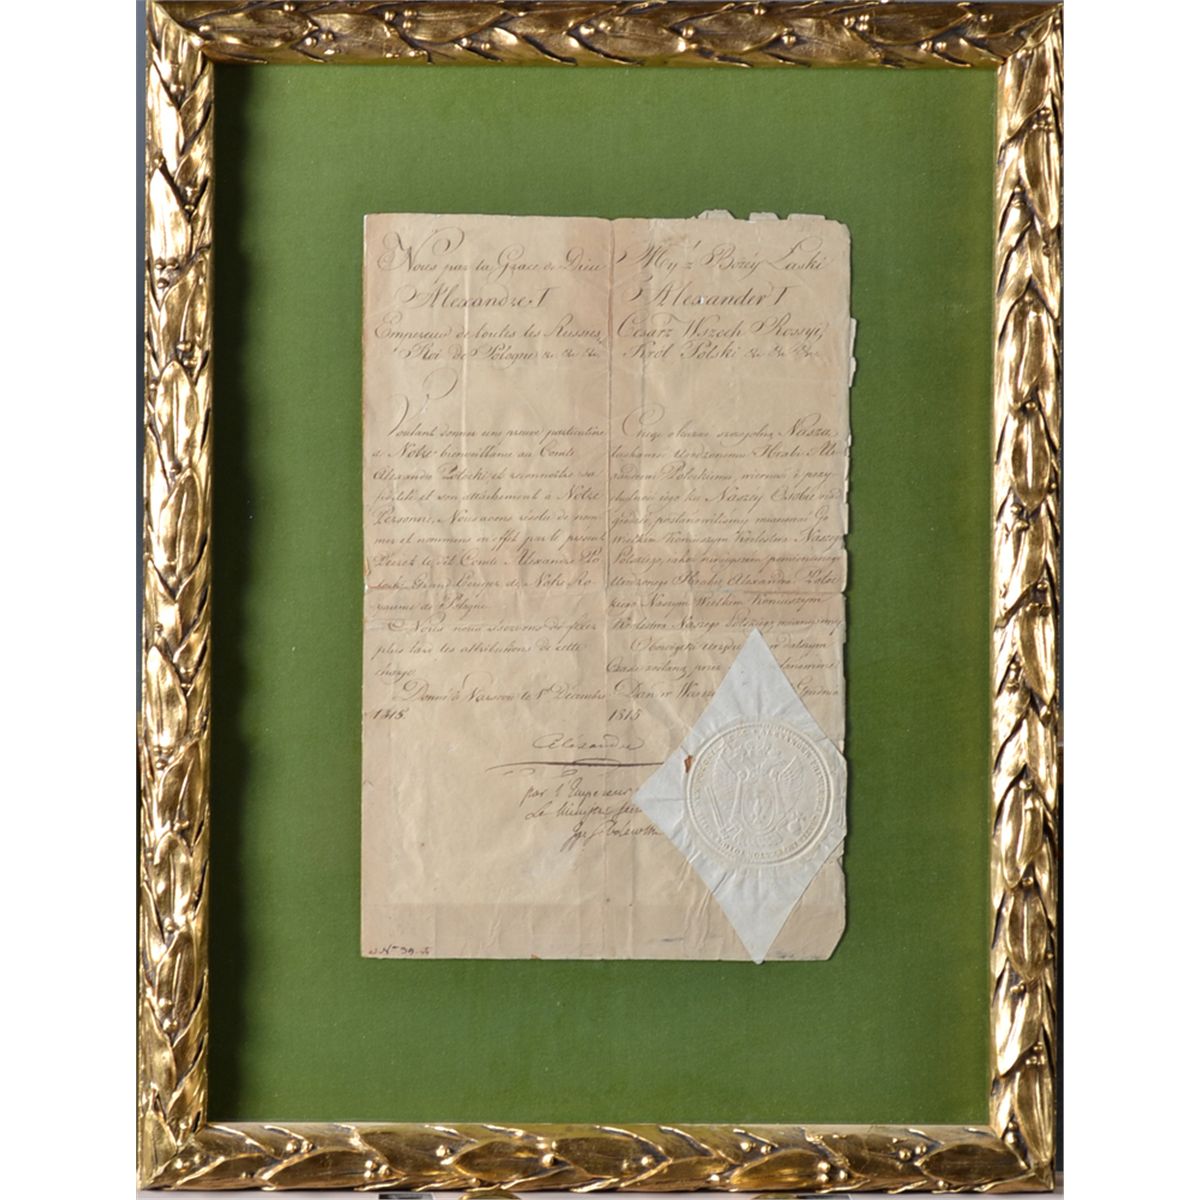 Nous par la Grace de Dieu
Alexandre I
Empereur de toutes les Russies,
Roi de Pologne &c &c &c
Voulant donner une preuve particuliere
de Notre bienveillance au Comte
Alexandre Potocki et reconnoître sa
fidélité et son attachement à Notre
Personne, Nous avons résolu de nom-
mer et nommons en effet par le present
Décret le dit Comte Alexandre Po-
tocki Grand Ecuyer de Notre Ro-
yaume de Pologne
Nous nous réservons de fixer
plus tard les attributions de cette
charge
Donné à Varsovie le 1r Décembre
1815.
My z Bożéy Łaski
Alexander I
Cesarz Wszech Rossyi,
Król Polski &c &c &c
Chcąc okazać szczególną Naszą
łaskawość Urodzonemu Hrabi Ale-
xandrowi Potockiemu, wierność i przy-
chylność iego ku Naszey Osobie
postanowiliśmy mianować Go
Wielkim Koniuszym Królestwa Naszego
Polskiego, iakoż ninieyszem
Urodzonego Hrabię Alexandra Potoc-
kiego Naszym Wielkim Koniuszym
Królestwa Naszego Polskiego mianuiemy
Obowiązki urzędu w dalszym
Czasie zostaną przez
Dan w Warsz Grudnia
1815
Alexandre
par l'Empereur
Le Ministre
J. No 39